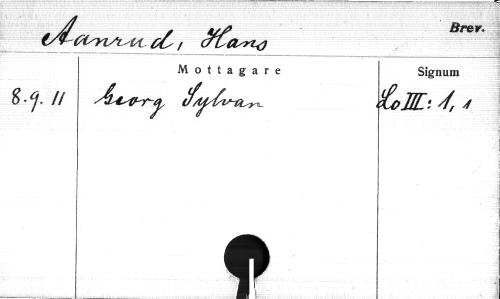 Aanrud, Hans
Brev.
Mottagare
Signum
8.9.11 Georg Sylvan Lo III: 1, 1